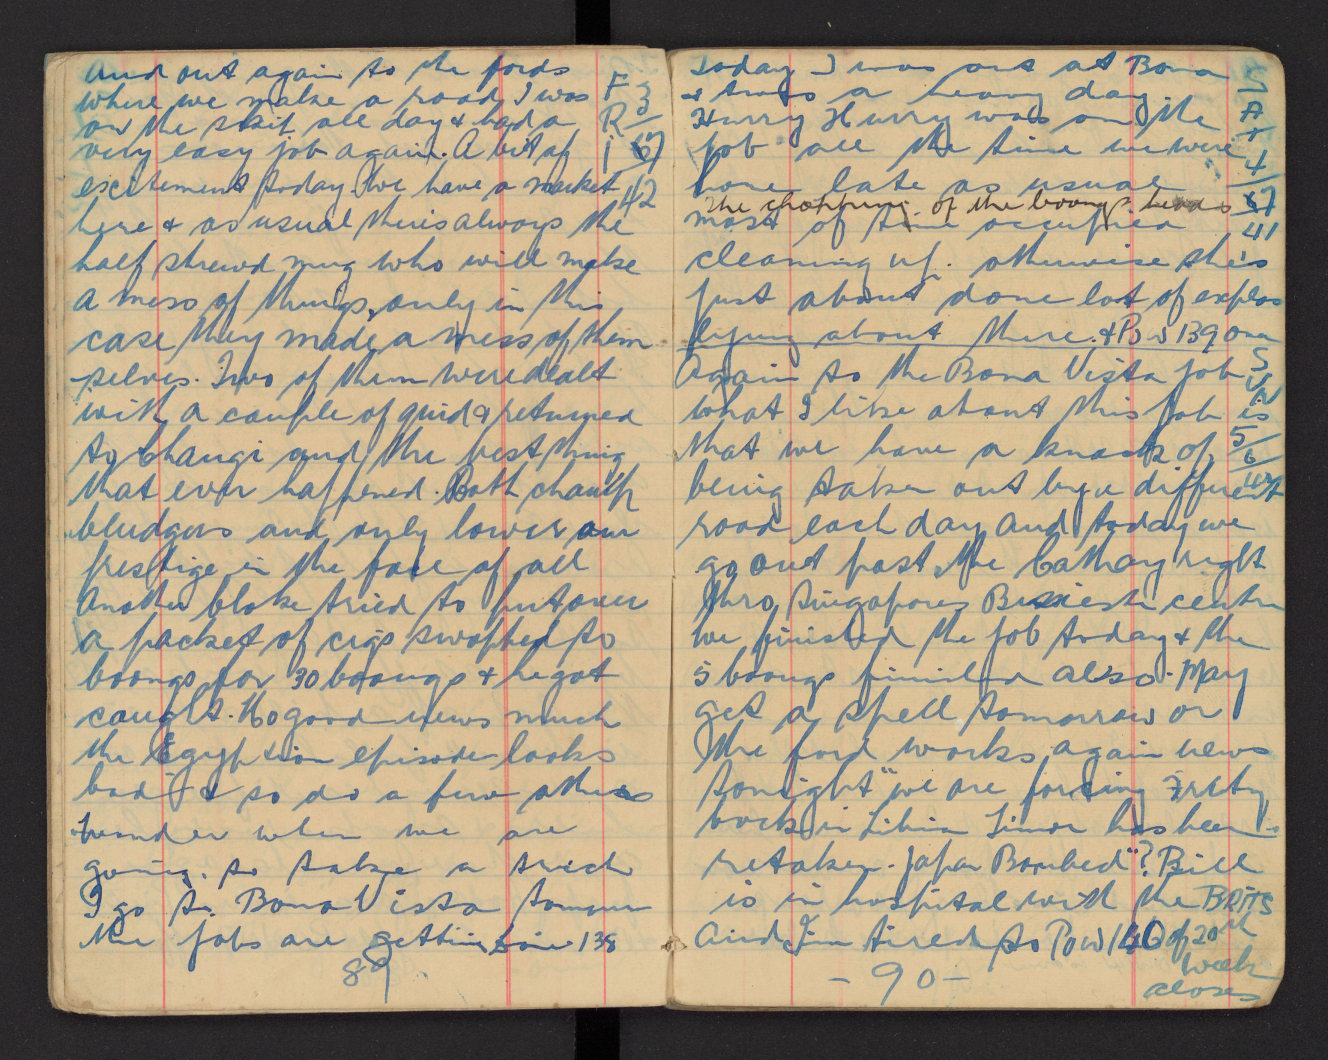 and out again to the fords
where we make a road, I was
on the skit all day & had a
very easy job again. A bit of
excitement today we have a market
here & as usual theris always the
half shrewd mug who will make
a mess of things, only in this
case they made a mess of them
selves. Two of them were dealt
with a couple of quid & returned
to Changi and the best thing
that ever happened. Both
bludgers and only lower our
prestige in the face of all
Another bloke tried to put over
a packet of cigs swopped to
boongs for 30 boongs & he got
caught. No good news much
the Egyption episode looks
bad & so do a few others
wonder when we are
going to take a trick
I go to Bona Vista tomorrow
the jobs are getting 138
FRI
3/
67
42
89
Today I was out at Bona
& twas a heavy day.
Hurry Hurry was on the
job all the time we were
home late as usual
The chopping of the boongs heads
most of time occupied
cleaning up. otherwise she's
just about done lot of explos
lying about there. & Pow 139 over
Again to the Bona Vista job
what I like about this job is
that we have a knack of
being taken out by a different
road each day and today we
go out past the Cathay right
thro Singapores Busiest centre
we finished the job today & the
5 boongs finished also. May
get a spell tomorrow or
the ford works again news
tonight "we are forcing Fritz
back in Libia Timor has been
retaken. Japan Bombed"? Bill
is in hospital with the BRITS
And I'm tired to Pow 140 of 20th
week
closes
SAT
4/
67
41
SUN
5/
6/
42
- 90 -